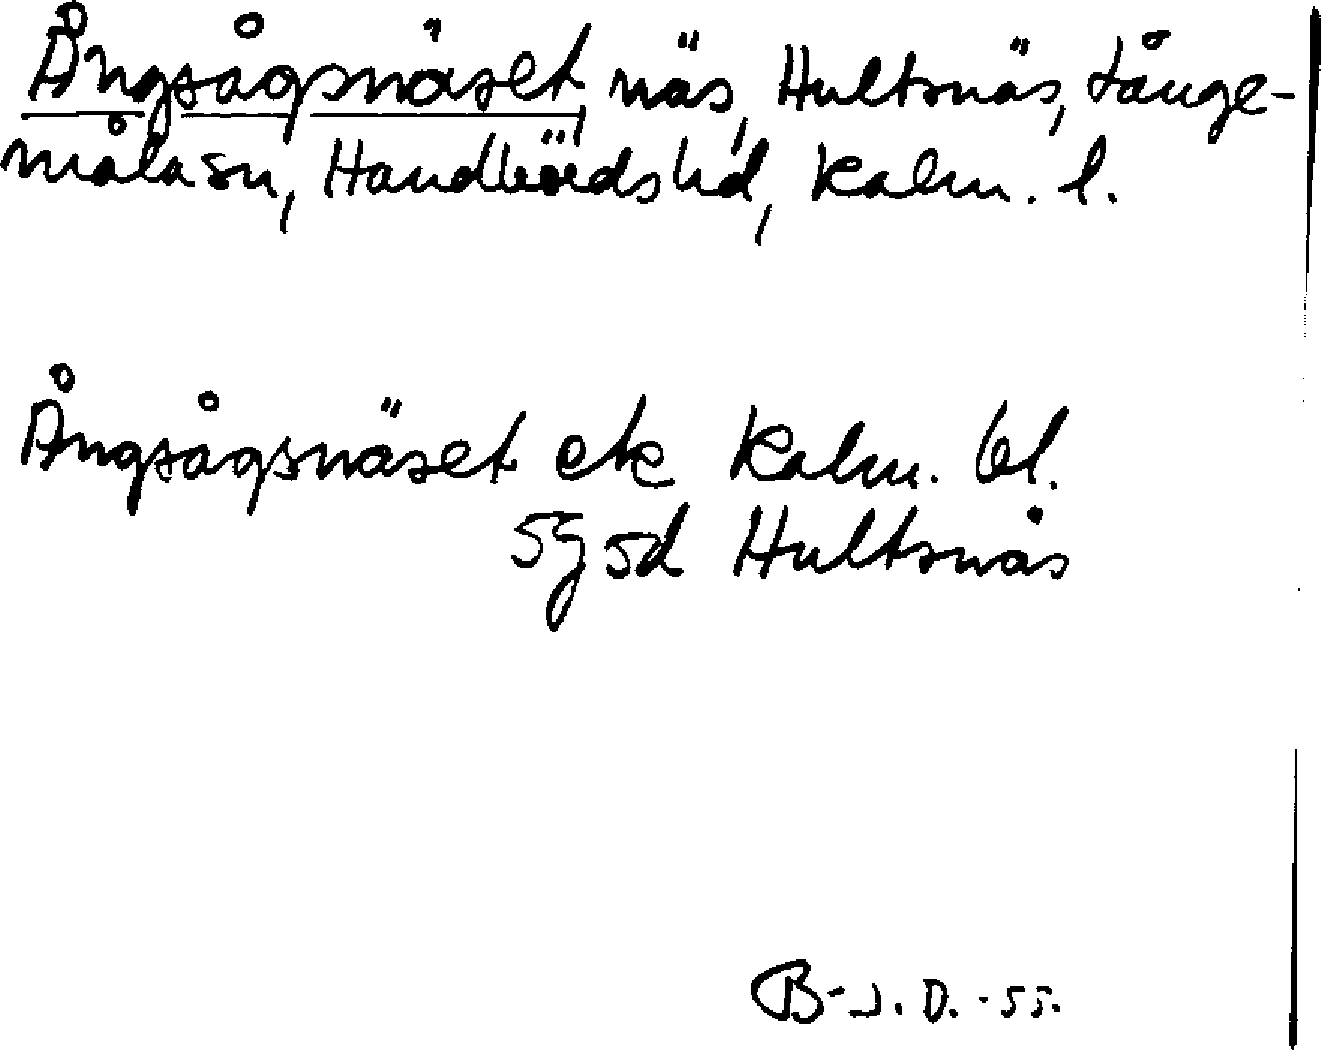 Ångsågsnäset, näs, Hultsnäs, Långe-
målasn, Handbördshd, Kalm. l.
Ångsågsnäset ek Kalm. bl.
5g5d Hultsnäs
B-J. D. -55.